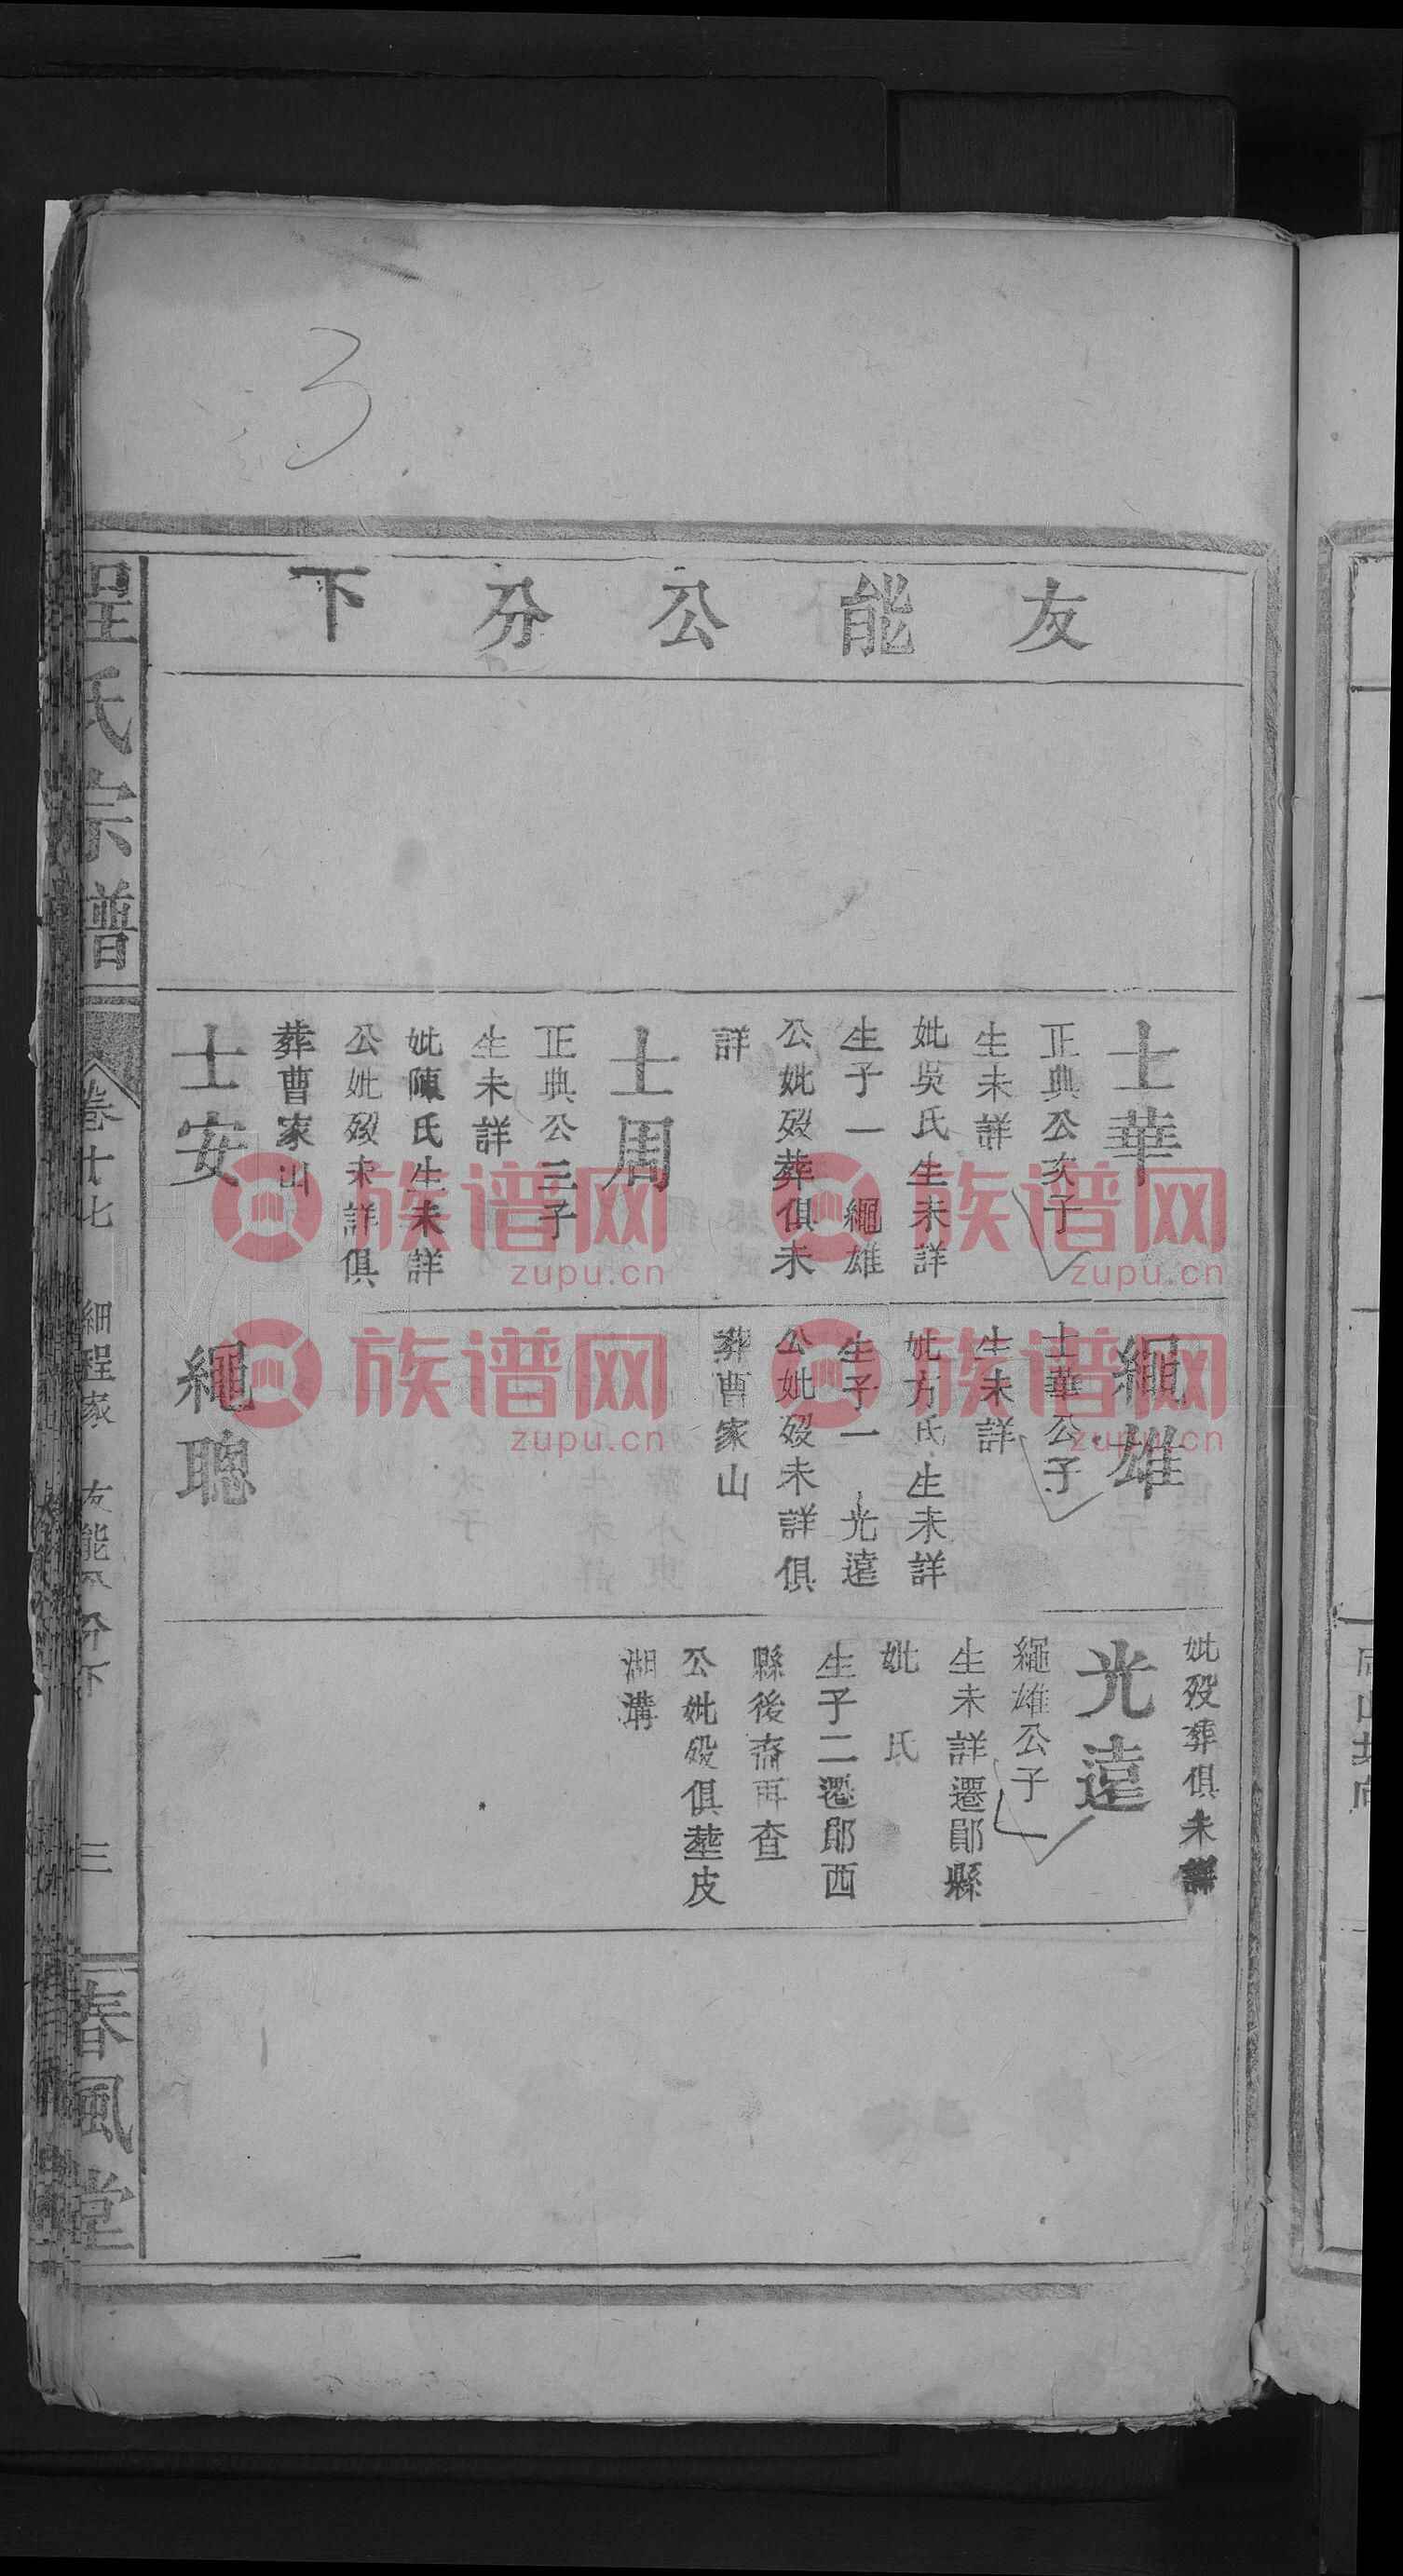 友能公分下
士華
正典公次子
生未詳
妣吳氏生未詳
生子一 繩雄
公妣歿葬俱未
詳
士周
正典公三子
生未詳
妣陳氏生未詳
公妣歿未詳俱
葬曹家山
士安
繩雄
士華公子
生未詳
妣方氏生未詳
生子一 光遠
公妣歿未詳俱
葬曹家山
繩聰
妣歿葬俱未詳
光遠
繩雄公子
生未詳遷鄖縣
妣 氏
生子二遷鄖西
縣後裔再查
公妣歿俱塟皮
湖溝
程氏宗譜
卷十七 細程家 友能公分下
三
春風堂
3
族谱网
zupu.cn
族谱网
zupu.cn
族谱网
zupu.cn
族谱网
zupu.cn